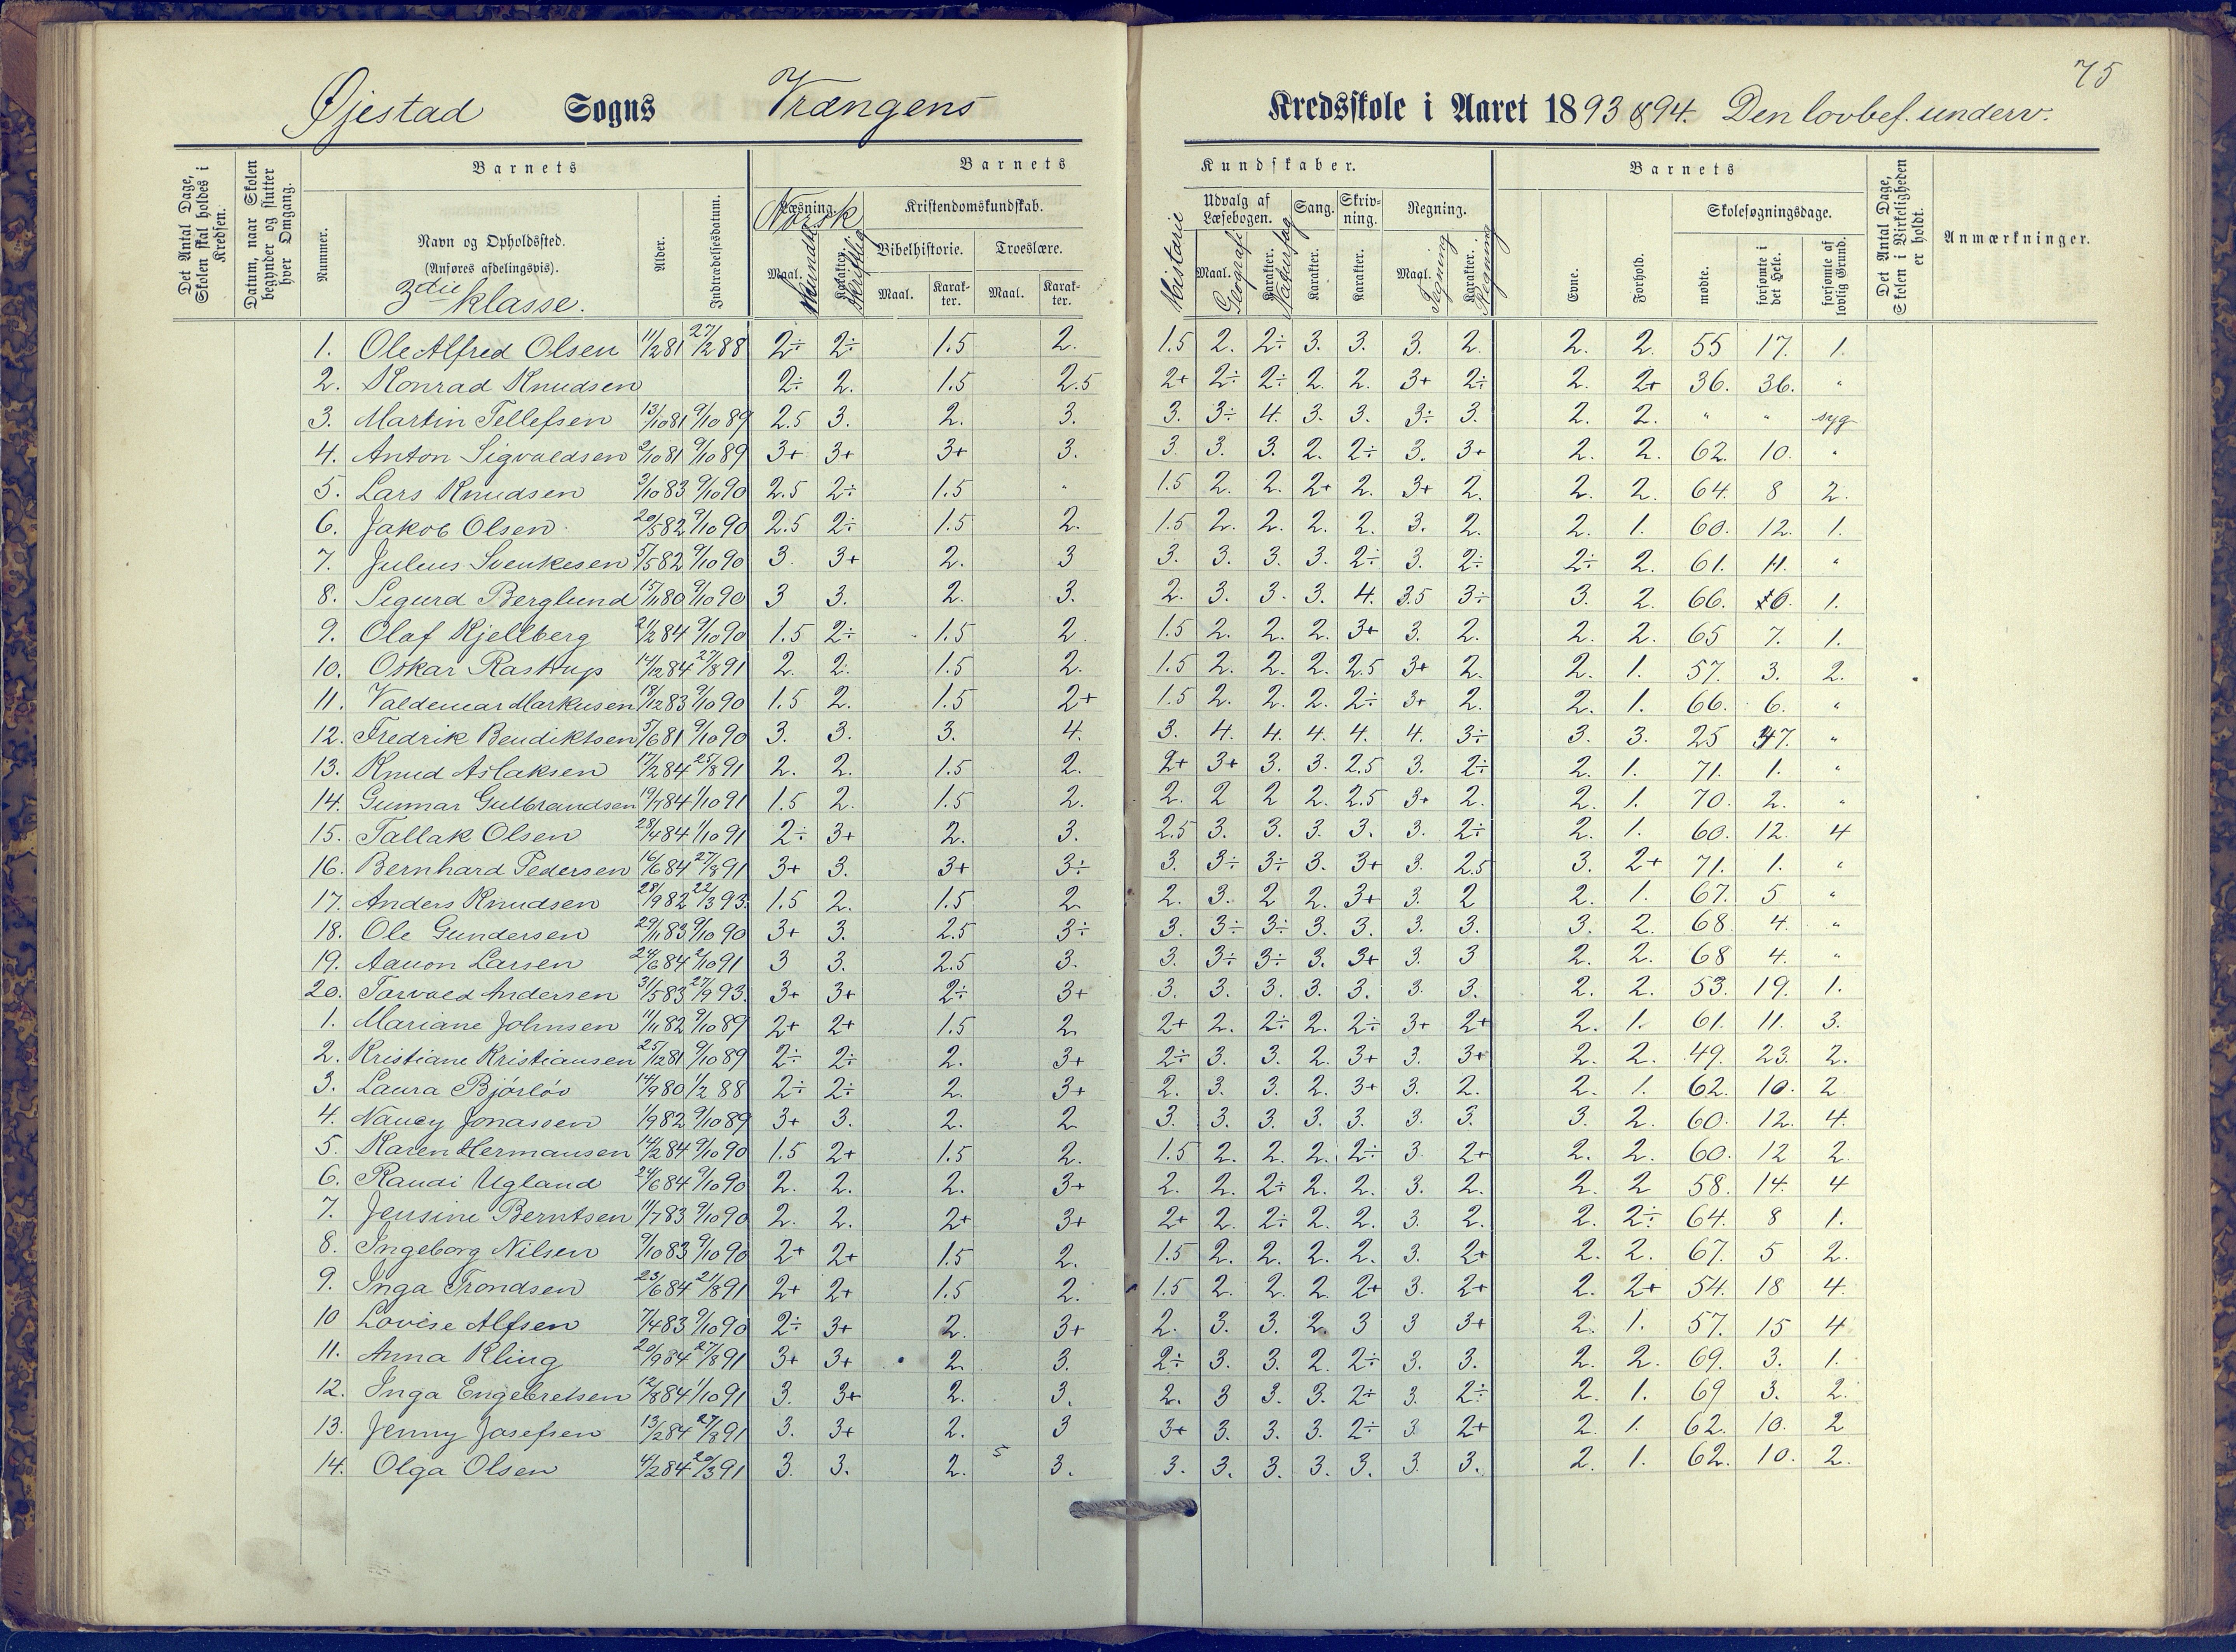 75
Øjestad Sogns Vrængens Kredsskole i Aaret 1893 & 94. Den lovbef. underv.
Det Antal Dage, Skolen skal holdes i Kredsen.
Datum, naar Skolen begynder og slutter hver Omgang.
Barnets
Nummer.
Navn og Opholdssted.
(Anføres afdelingsvis).
3die klasse.
Alder.
Indtrædelsesdatum.
Barnets Kundskaber.
Læsning. Norsk
Maal. Mundtl.
Karakter. Skriftlig
Kristendomskundskab.
Bibelhistorie. Troeslære.
Maal. Karakter. Maal. Karakter.
Historie
Udvalg af Læsebogen.
Maal. Geografi
Karakter. Naturfag
Sang. Karakter.
Skrivning. Karakter.
Regning.
Maal. Tegning
Karakter. Regning
Barnets
Evne. Forhold.
Skolesøgningsdage.
mødte. forsømte i det Hele. forsømte af lovlig Grund.
Det Antal Dage, Skolen i Virkeligheden er holdt.
Anmærkninger.
1. Ole Alfred Olsen 11/2 81 27/2 88 2÷ 2÷ 1.5 2. 1.5 2. 2÷ 3. 3. 3. 2. 2. 2. 55 17. 1.
2. Konrad Knudsen 2÷ 2. 1.5 2.5 2+ 2÷ 2÷ 2. 2. 3+ 2÷ 2. 2+ 36. 36. "
3. Martin Tellefsen 13/10 81 9/10 89 2.5 3. 2. 3. 3. 3÷ 4. 3. 3. 3÷ 3. 2. 2. " " syg
4. Anton Sigvaldsen 2/10 81 9/10 89 3+ 3+ 3+ 3. 3. 3. 3. 2. 2÷ 3. 3+ 2. 2. 62. 10. "
5. Lars Knudsen 3/10 83 9/10 90 2.5 2÷ 1.5 " 1.5 2. 2. 2+ 2. 3+ 2. 2. 2. 64. 8 2.
6. Jakob Olsen 20/5 82 9/10 90 2.5 2÷ 1.5 2. 1.5 2. 2. 2. 2. 3. 2. 2. 1. 60. 12. 1.
7. Julius Svenkesen 5/5 82 9/10 90 3. 3+ 2. 3 3. 3. 3. 3. 2÷ 3. 2÷ 2÷ 2. 61. 11. "
8. Sigurd Berglund 15/11 80 9/10 90 3 3. 2. 3. 2. 3. 3. 3. 4. 3.5 3÷ 3. 2. 66. 6. 1.
9. Olaf Kjellberg 21/2 84 9/10 90 1.5 2÷ 1.5 2. 1.5 2. 2. 2. 3+ 3. 2. 2. 2. 65 7. 1.
10. Oskar Rastrup 14/12 84 27/8 91 2. 2. 1.5 2. 1.5 2. 2. 2. 2.5 3+ 2. 2. 1. 57. 3. 2.
11. Valdemar Markusen 18/12 83 9/10 90 1.5 2. 1.5 2+ 1.5 2. 2. 2. 2÷ 3+ 2. 2. 1. 66. 6. "
12. Fredrik Bendiktsen 5/6 81 9/10 90 3. 3. 3. 4. 3. 4. 4. 4. 4. 4. 3÷ 3. 3. 25 47. "
13. Knud Aslaksen 17/2 84 25/8 91 2. 2. 1.5 2. 2+ 3+ 3. 3. 2.5 3. 2÷ 2. 1. 71. 1. "
14. Gunnar Gulbrandsen 19/7 84 1/10 91 1.5 2. 1.5 2. 2. 2 2 2. 2.5 3+ 2. 2. 1. 70. 2. "
15. Tallak Olsen 28/4 84 1/10 91 2÷ 3+ 2. 3. 2.5 3. 3. 3. 3. 3. 2÷ 2. 1. 60. 12. 4
16. Bernhard Pedersen 16/6 84 27/8 91 3+ 3. 3+ 3÷ 3. 3÷ 3÷ 3. 3+ 3. 2.5 3. 2+ 71. 1. "
17. Anders Knudsen 28/9 82 22/3 93. 1.5 2. 1.5 2. 2. 3. 2 2. 3+ 3. 2 2. 1. 67. 5 "
18. Ole Gundersen 29/11 83 9/10 90 3+ 3. 2.5 3÷ 3. 3÷ 3÷ 3. 3. 3. 3. 3. 2. 68. 4. "
19. Aanon Larsen 24/6 84 2/10 91 3 3. 2.5 3. 3. 3÷ 3÷ 3. 3+ 3. 3 2. 2. 68 4. "
20. Torvald Andersen 31/5 83 27/9 93. 3+ 3+ 2÷ 3+ 3. 3. 3. 3. 3. 3. 3. 2. 2. 53. 19. 1.
1. Mariane Johnsen 11/11 82 9/10 89 2+ 2+ 1.5 2. 2+ 2. 2÷ 2. 2÷ 3+ 2+ 2. 1. 61. 11. 3.
2. Kristiane Kristiansen 25/12 81 9/10 89 2÷ 2÷ 2. 3+ 2÷ 3. 3. 2. 3+ 3. 3+ 2. 2. 49. 23. 2.
3. Laura Bjórlóv 14/9 80 1/2 88 2÷ 2÷ 2. 3+ 2. 3. 3. 2. 3+ 3. 2. 2. 1. 62. 10. 2
4. Nancy Jonassen 1/9 82 9/10 89 3+ 3. 2. 2. 3. 3. 3. 3. 3. 3. 3. 3. 2. 60. 12. 4.
5. Karen Hermansen 14/2 84 9/10 90 1.5 2+ 1.5 2. 1.5 2. 2. 2. 2÷ 3. 2+ 2. 2. 60. 12 2.
6. Randi Ugland 24/6 84 9/10 90 2. 2. 2. 3+ 2. 2. 2÷ 2. 2. 3. 2. 2. 2 58. 14. 4
7. Jensine Berntsen 11/7 83 9/10 90 2. 2. 2+ 3+ 2+ 2. 2÷ 2. 2. 3. 2. 2. 2÷ 64. 8 1.
8. Ingeborg Nilsen 9/10 83 9/10 90 2+ 2+ 1.5 2. 1.5 2. 2. 2. 2. 3. 2+ 2. 2. 67. 5 2.
9. Inga Trondsen 23/6 84 21/8 91 2+ 2+ 1.5 2. 1.5 2. 2. 2. 2+ 3. 2+ 2. 2+ 54. 18 4.
10 Lovise Alfsen 7/4 83 9/10 90 2÷ 3+ 2. 3+ 2. 3. 3. 2. 3 3 3+ 2. 1. 57. 15 4
11. Anna Kling 20/9 84 27/8 91 3+ 3+ 2. 3. 2÷ 3. 3. 2. 2÷ 3. 3. 2. 2. 69. 3. 1.
12. Inga Engebretsen 12/8 84 1/10 91 3. 3+ 2. 3. 2. 3 3. 3. 2÷ 3. 2÷ 2. 1. 69 3. 2.
13. Jenny Josefsen 13/2 84 27/8 91 3. 3+ 2. 3 3+ 3. 3. 3. 2÷ 3. 2+ 2. 1. 62. 10. 2
14. Olga Olsen 4/2 84 20/3 91 3. 3. 2. 5 3. 3. 3. 3. 3. 3. 3. 3. 2. 1. 62. 10. 2.